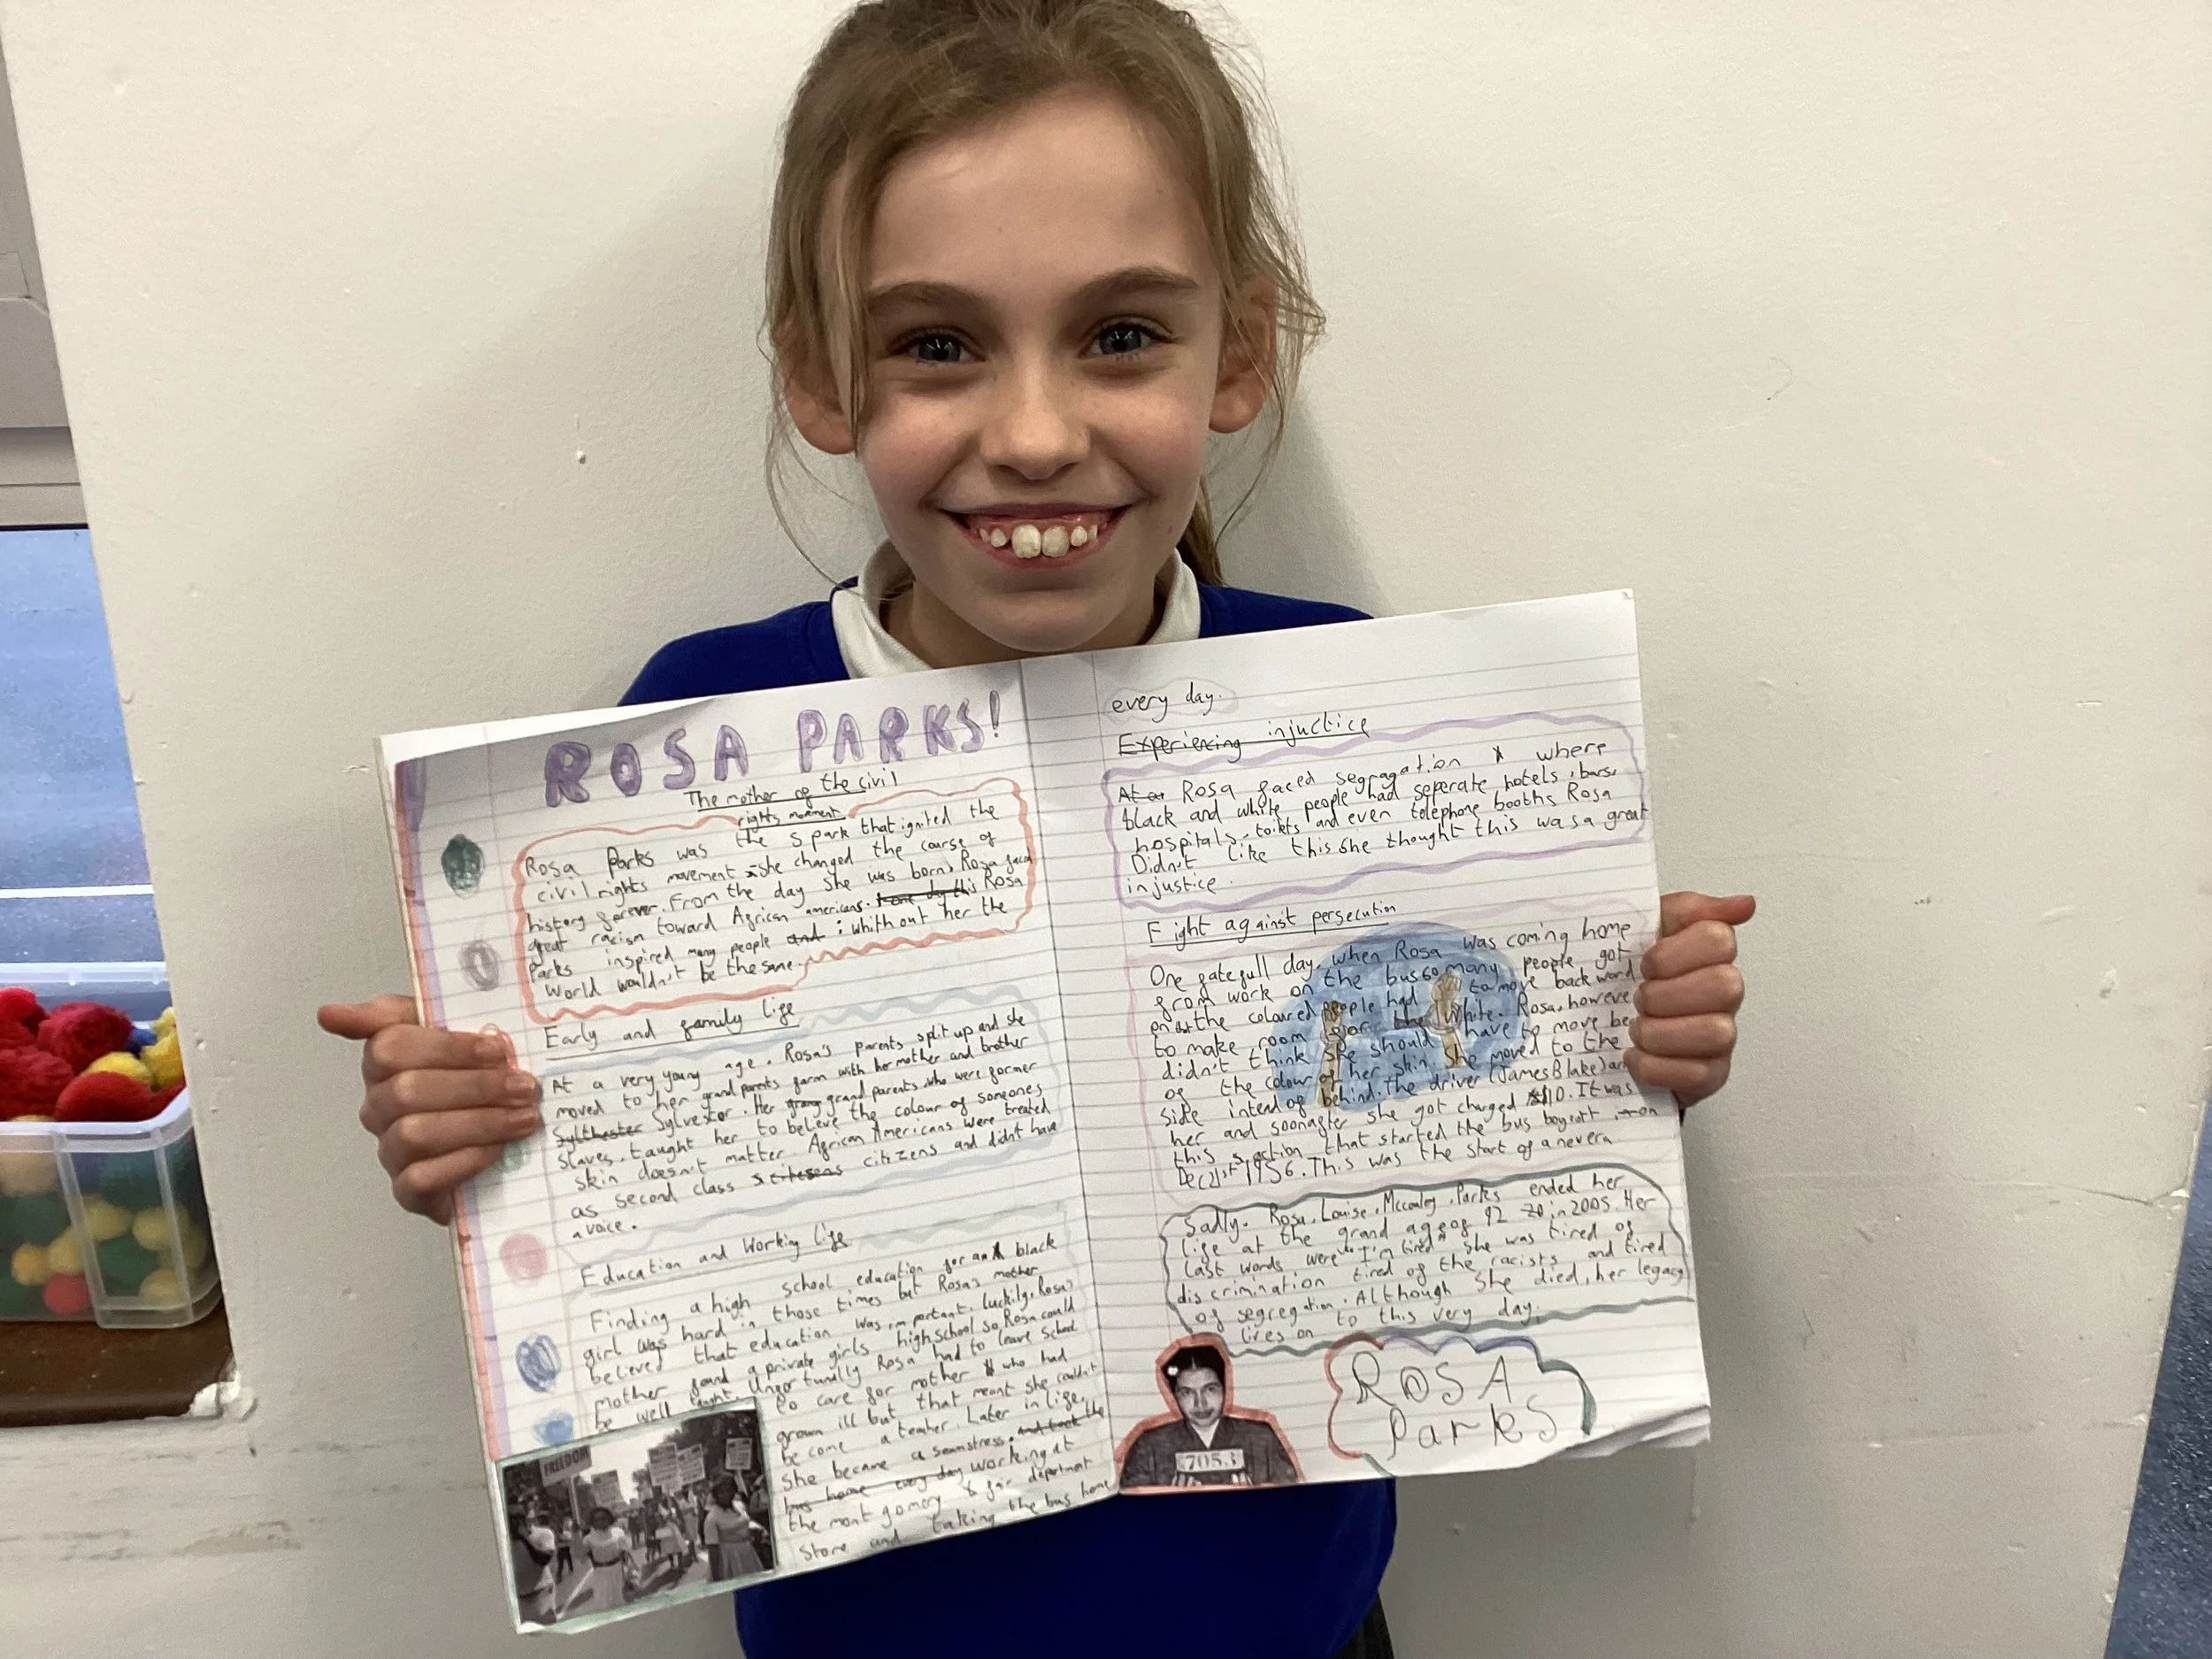 ROSA PARKS!
The mother of the civil
rights movment
Rosa Parks was the spark that ignited the
civil rights movement she changed the course of
history forever. From the day she was born, Rosa faced
great racism toward African americans. this Rosa
Parks inspired many people and : whithout her the
world wouldn't be the same.
Early and family life
At a very young age, Rosa's parents split up and she
moved to her grandparents farm with her mother and brother
Sylthester Sylvestor. Her grandparents who were former
slaves, taught her to believe the colour of someones
skin doesn't matter. African Americans were treated
as second class citizens and didn't have
a voice.
Education and Working life
Finding a high school education for a black
girl was hard in those times but Rosa's mother
believed that education was important. luckily, Rosa's
mother found a private girls highschool so Rosa could
be well taught. Unfortunally Rosa had to leave school
to care for mother who had
grown ill but that meant she couldn't
become a teacher. Later in life,
she became a seamstress. and took the
bus home every day working at
the montgomery fair department
store and taking the bus home
FREEDOM
every day.
Experiencing injuctice
At Rosa faced segragation where
black and white people had seperate hotels, bars,
hospitals, toilets and even telephone booths Rosa
Didn't like this she thought this was a great
injustice.
Fight against persecution
One fatefull day, when Rosa was coming home
from work on the bus so many people got
on that the coloured people had to move backward
to make room for the white. Rosa, however
didn't think she should have to move be
of the colour of her skin. She moved to the
side intend of behind. The driver (James Blake) arr
her and soonafter she got charged $10. It was
this action that started the bus boycott on
Dec 21st 1956. This was the start of a new era
Sadly, Rosa, Louise, Mccauley, Parks ended her
life at the grand age of 92 in 2005. Her
last words were "I'm tired" she was tired of
discrimination tired of the racists and tired
of segregation. Although she died, her legacy
lives on to this very day.
7053
ROSA
Parks